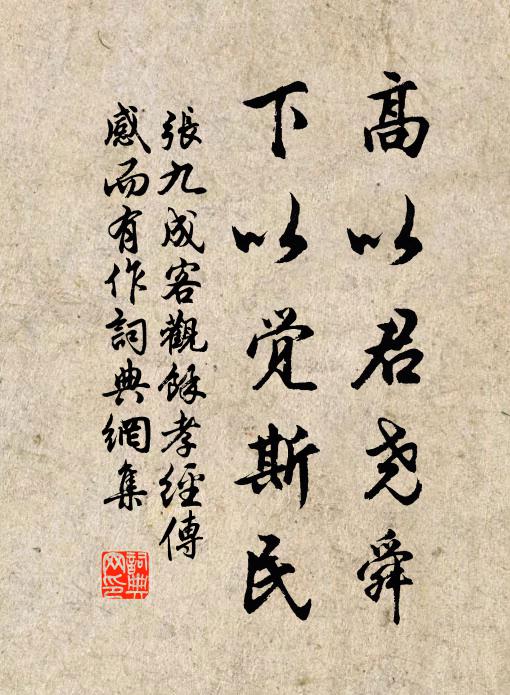 高以君尧舜
下以觉斯民
張九成客觀餘孝經傳
感而有作詞典網集
詞典网印